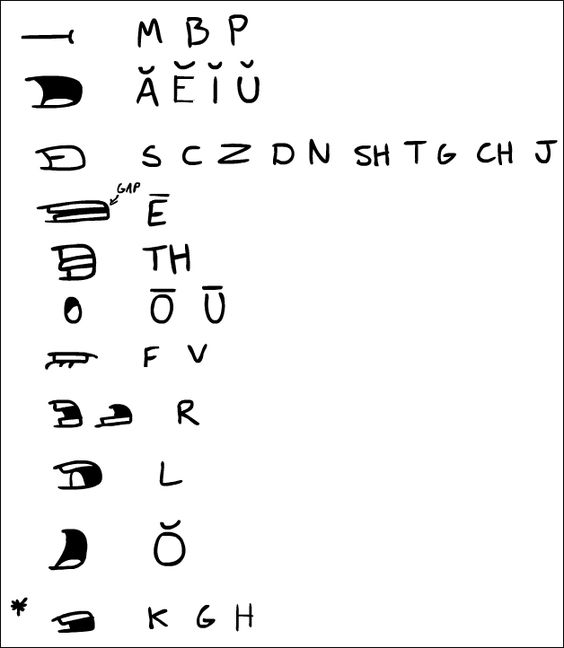 M B P
Ă Ĕ Ĭ Ŭ
S C Z D N SH T G CH J
GAP Ē
TH
Ō Ū
F V
R
L
Ŏ
* K G H